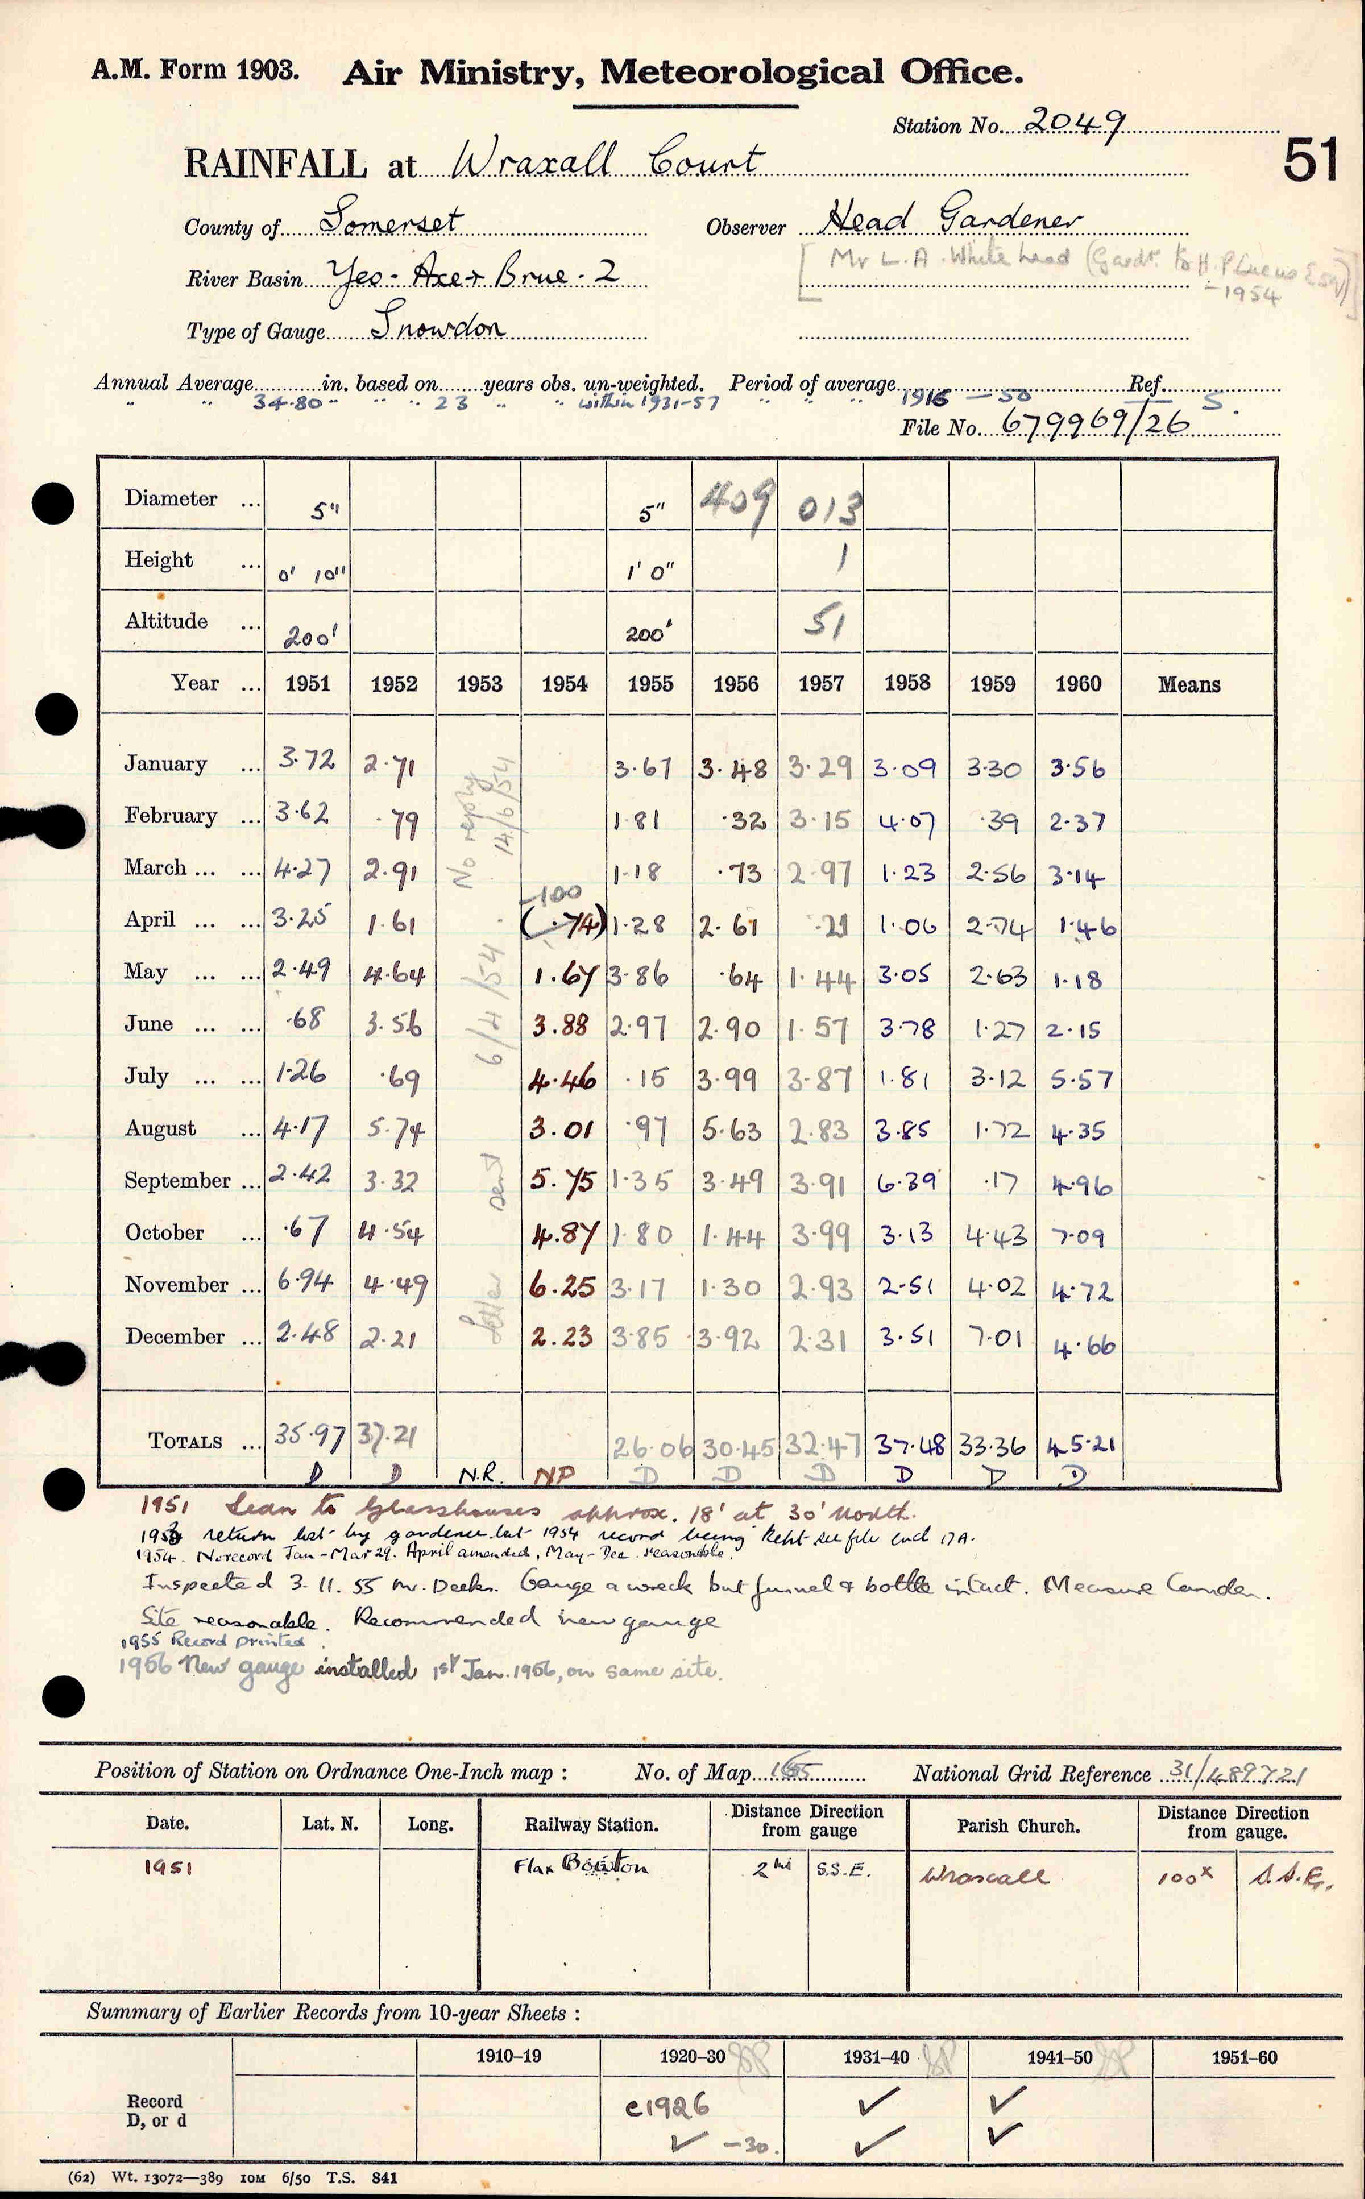 A.M. Form 1903. Air Ministry, Meteorological Office.
Station No. 2049
51
RAINFALL at Wraxall Court
County of Somerset Observer Head Gardener
[Mr L.A. Whitehead (Gardr. to H.P Lucas Esq) -1954]
River Basin Yeo - Axe + Brue - 2
Type of Gauge Snowdon
Annual Average in. based on years obs. un-weighted. Period of average Ref.
" " 34.80 " " " 23 " " within 1931-57 " " " 1916 - 50 S.
File No. 679969/26
Diameter ... 5" 5" 409 013
Height ... 0' 10" 1' 0" 1
Altitude ... 200' 200' 51
Year ... 1951 1952 1953 1954 1955 1956 1957 1958 1959 1960 Means
January ... 3.72 2.71 3.67 3.48 3.29 3.09 3.30 3.56
February ... 3.62 .79 1.81 .32 3.15 4.07 .39 2.37
March ... ... 4.27 2.91 1.18 .73 2.97 1.23 2.56 3.14
-100
April ... ... 3.25 1.61 (.74) 1.28 2.61 .21 1.06 2.74 1.46
May ... ... 2.49 4.64 1.67 3.86 .64 1.44 3.05 2.63 1.18
June ... ... .68 3.56 3.88 2.97 2.90 1.57 3.78 1.27 2.15
July ... ... 1.26 .69 4.46 .15 3.99 3.87 1.81 3.12 5.57
August ... 4.17 5.74 3.01 .97 5.63 2.83 3.85 1.72 4.35
September ... 2.42 3.32 5.75 1.35 3.49 3.91 6.39 .17 4.96
October ... .67 4.54 4.87 1.80 1.44 3.99 3.13 4.43 7.09
November ... 6.94 4.49 6.25 3.17 1.30 2.93 2.51 4.02 4.72
December ... 2.48 2.21 2.23 3.85 3.92 2.31 3.51 7.01 4.66
Letter sent 6/4/54. No reply 14/6/54
TOTALS ... 35.97 37.21 26.06 30.45 32.47 37.48 33.36 45.21
D D N.R. NP D D D D D D
1951 Lean to Glasshouses approx. 18' at 30' North.
1953 return lost by gardener but 1954 record being kept see file encl 17A.
1954. No record Jan - Mar 29. April amended, May - Dec. reasonable.
Inspected 3.11.55 Mr. Deeks. Gauge a wreck but funnel & bottle intact. Measure Camden.
Site reasonable. Recommended new gauge
1955 Record printed.
1956 New gauge installed 1st Jan. 1956, on same site.
Position of Station on Ordnance One-Inch map : No. of Map 165 National Grid Reference 31/489721
Date. Lat. N. Long. Railway Station. Distance Direction from gauge Parish Church. Distance Direction from gauge.
1951 Flax Bourton 2 mi S.S.E. Wraxall 100x S.S.E.
Summary of Earlier Records from 10-year Sheets :
1910-19 1920-30 1931-40 1941-50 1951-60
Record c1926 ✓ ✓
D, or d ✓ -30. ✓ ✓
(62) Wt. 13072—389 10M 6/50 T.S. 841